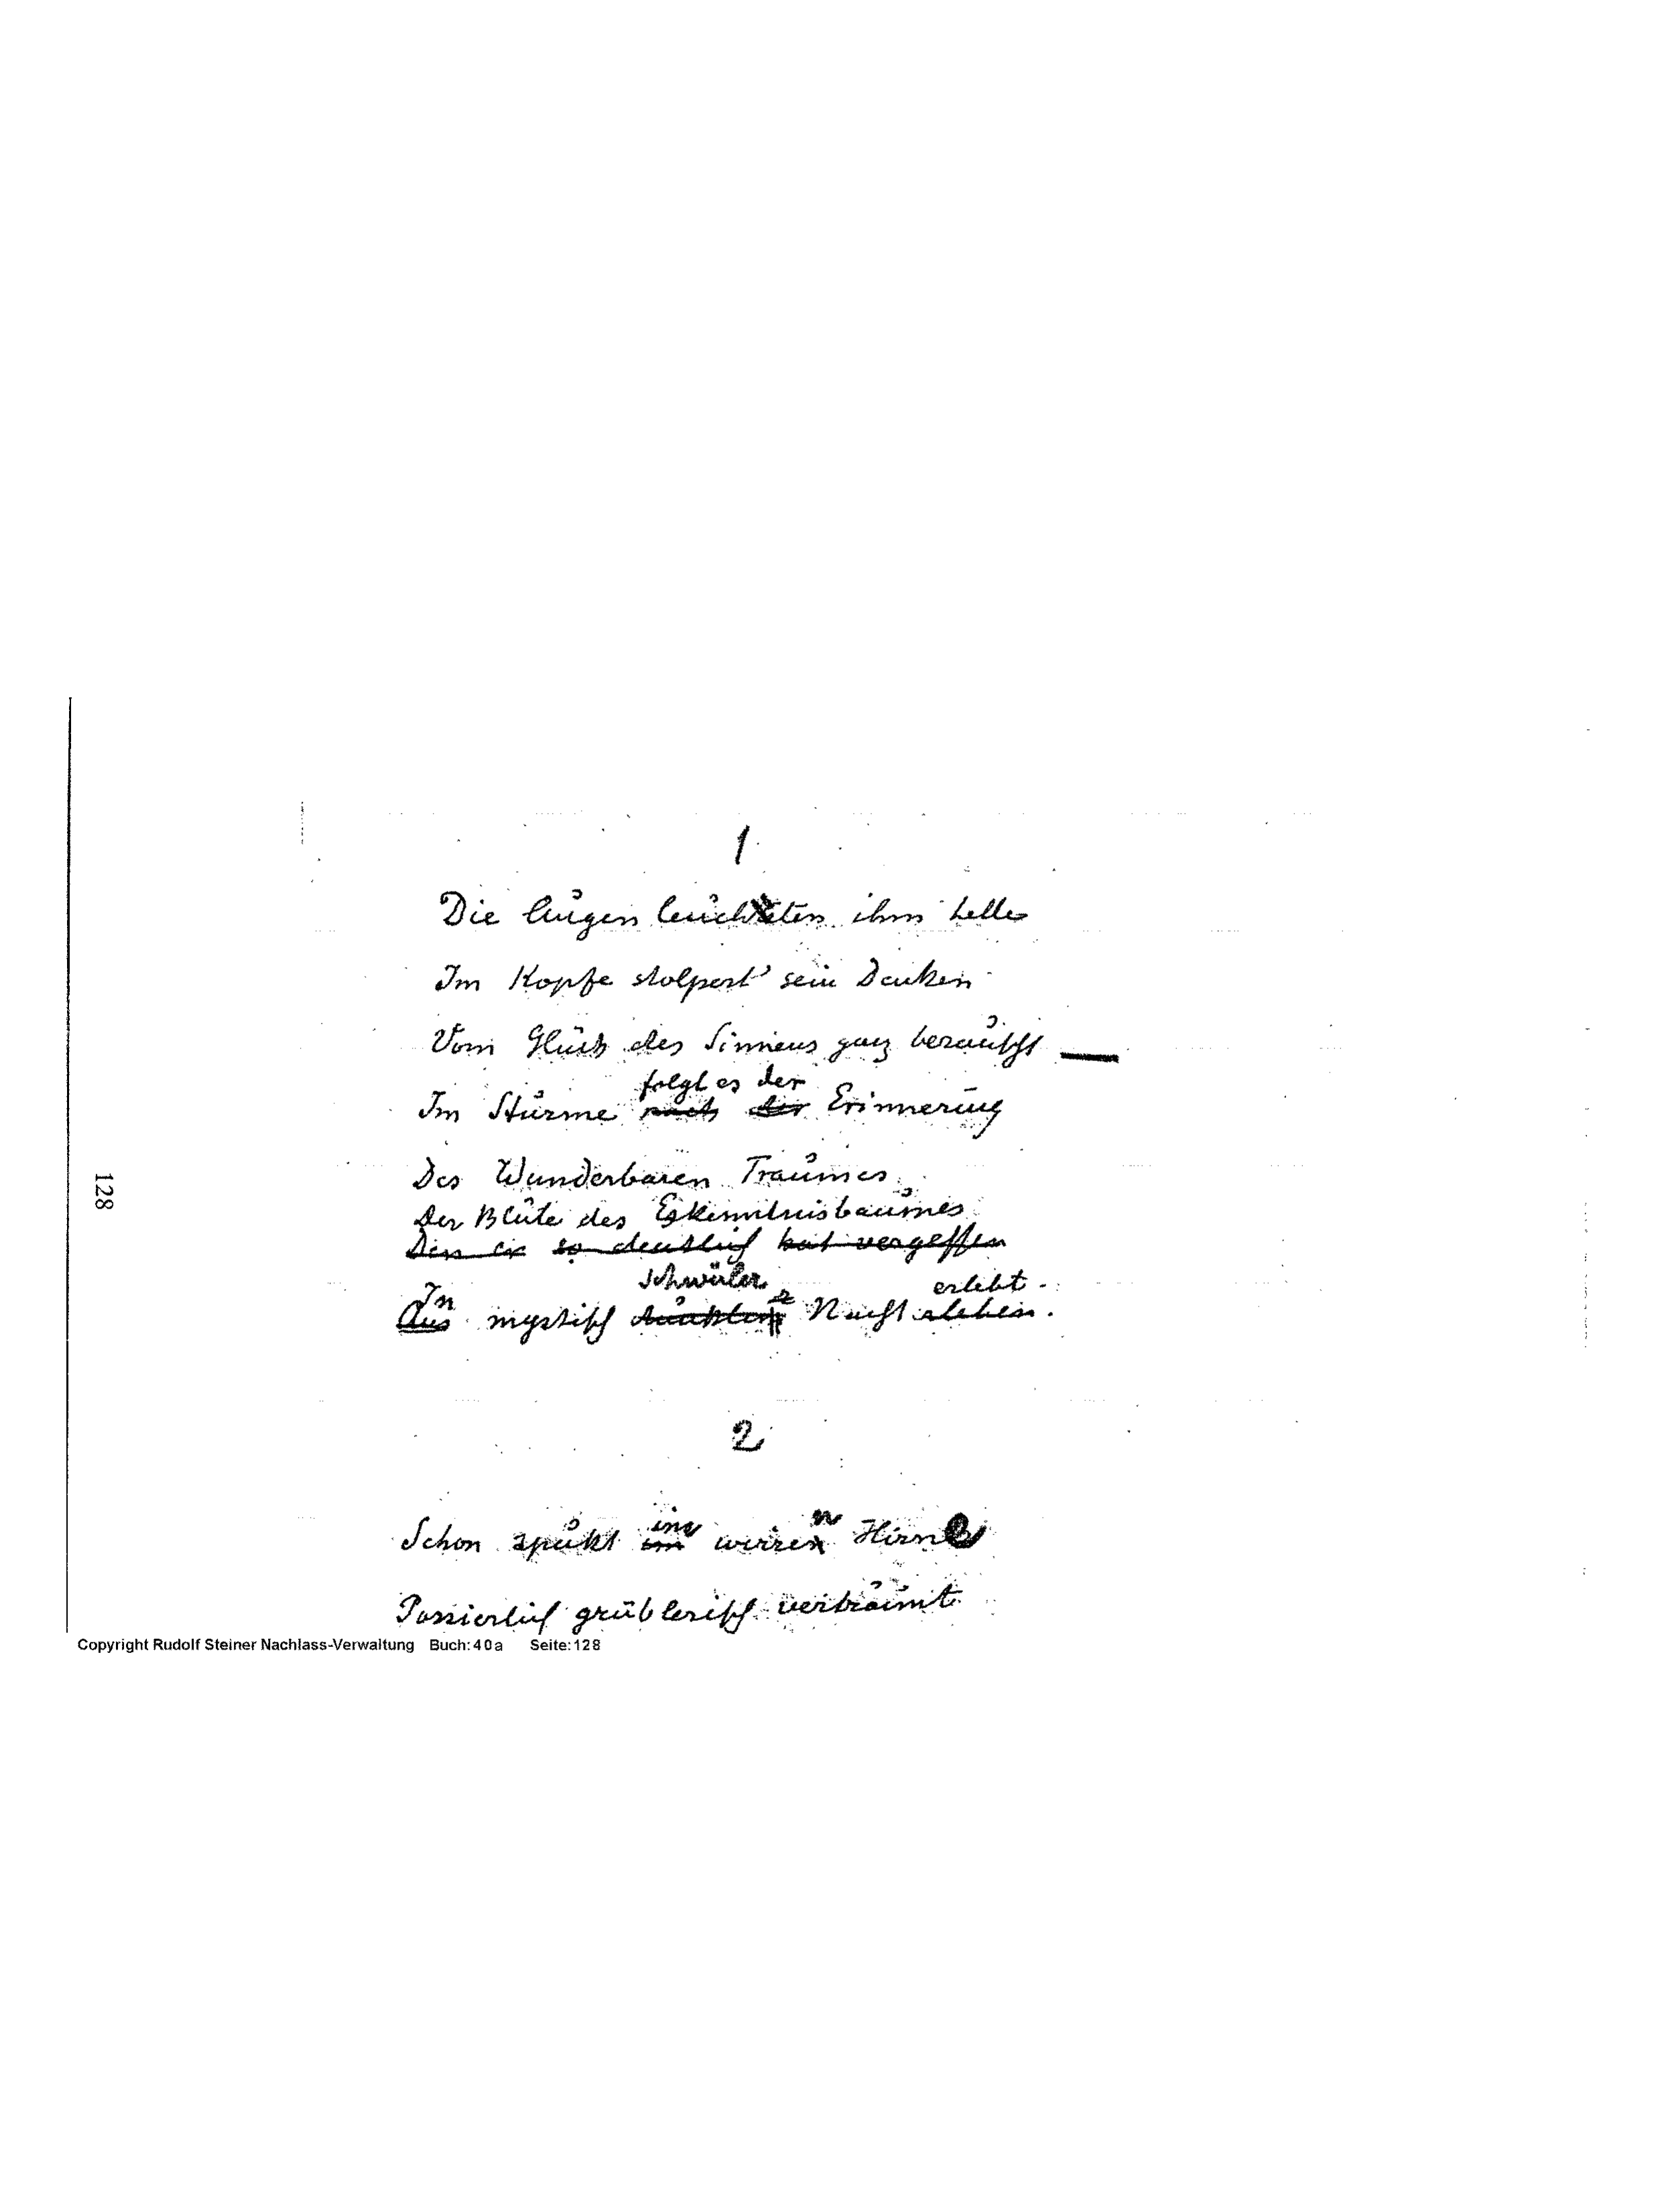 1
Die Augen leuchteten ihm helle
Im Kopfe stolpert' sein Denken
Vom Glück des Sinnens ganz berauscht —
folgt es der
Im Sturme nach der Erinnerung
Des Wunderbaren Traumes
Der Blüte des Erkenntnisbaumes
Den er so deutlich hat vergessen
schwüler erlebt -
In
Aus mystisch dunkler Nacht erleben.
2
im n
Schon spukt im wirren Hirne
Possierlich grüblerisch verträumt
128
Copyright Rudolf Steiner Nachlass-Verwaltung Buch:40a Seite:128